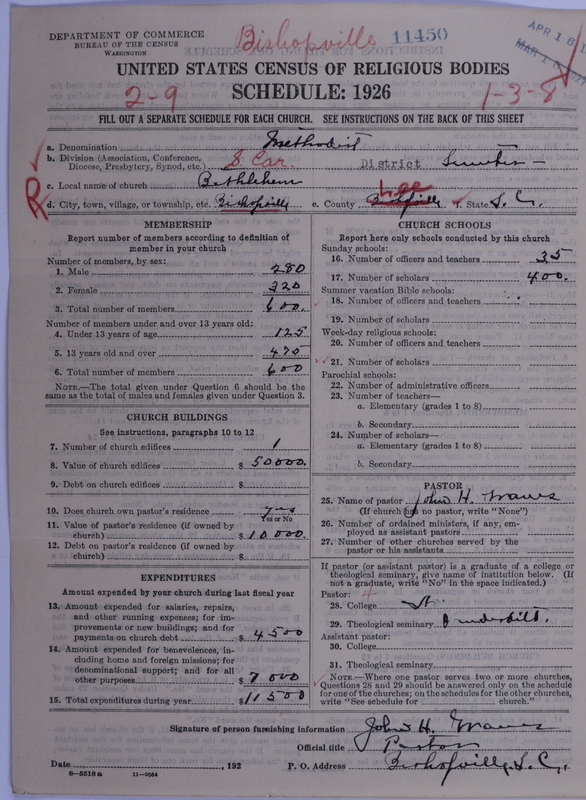 DEPARTMENT OF COMMERCE
BUREAU OF THE CENSUS
WASHINGTON
Bishopville 11450
APR 16
MAR
UNITED STATES CENSUS OF RELIGIOUS BODIES
2-9 SCHEDULE: 1926 1-3-8
FILL OUT A SEPARATE SCHEDULE FOR EACH CHURCH. SEE INSTRUCTIONS ON THE BACK OF THIS SHEET
a. Denomination Methodist
b. Division (Association, Conference, Diocese, Presbytery, Synod, etc.) S Car District Sumter
c. Local name of church Bethlehem
R
d. City, town, village, or township, etc. Bishopville e. County Lee f. State S. C.
MEMBERSHIP
Report number of members according to definition of member in your church
Number of members, by sex:
1. Male 280
2. Female 320
3. Total number of members 600.
Number of members under and over 13 years old:
4. Under 13 years of age 125
5. 13 years old and over 475
6. Total number of members 600
NOTE.—The total given under Question 6 should be the same as the total of males and females given under Question 3.
CHURCH BUILDINGS
See instructions, paragraphs 10 to 12
7. Number of church edifices 1
8. Value of church edifices $ 50000.
9. Debt on church edifices $
10. Does church own pastor's residence yes
Yes or No
11. Value of pastor's residence (if owned by church) $ 10000.
12. Debt on pastor's residence (if owned by church) $
EXPENDITURES
Amount expended by your church during last fiscal year
13. Amount expended for salaries, repairs, and other running expenses; for improvements or new buildings; and for payments on church debt $ 4500
14. Amount expended for benevolences, including home and foreign missions; for denominational support; and for all other purposes $ 7000
15. Total expenditures during year $ 11500
CHURCH SCHOOLS
Report here only schools conducted by this church
Sunday schools:
16. Number of officers and teachers 35
17. Number of scholars 400.
Summer vacation Bible schools:
18. Number of officers and teachers
19. Number of scholars
Week-day religious schools:
20. Number of officers and teachers
21. Number of scholars
Parochial schools:
22. Number of administrative officers
23. Number of teachers—
a. Elementary (grades 1 to 8)
b. Secondary
24. Number of scholars—
a. Elementary (grades 1 to 8)
b. Secondary
PASTOR
25. Name of pastor John H. Graves
(If church has no pastor, write "None")
26. Number of ordained ministers, if any, employed as assistant pastors
27. Number of other churches served by the pastor or his assistants
If pastor (or assistant pastor) is a graduate of a college or theological seminary, give name of institution below. (If not a graduate, write "No" in the space indicated.)
Pastor: 4
28. College
29. Theological seminary Vanderbilt.
Assistant pastor:
30. College
31. Theological seminary
NOTE.—Where one pastor serves two or more churches, Questions 28 and 29 should be answered only on the schedule for one of the churches; on the schedules for the other churches, write "See schedule for church."
Signature of person furnishing information John H. Graves
Official title Pastor
Date , 192 P. O. Address Bishopville, S. C.
8-5518 a 11-9054